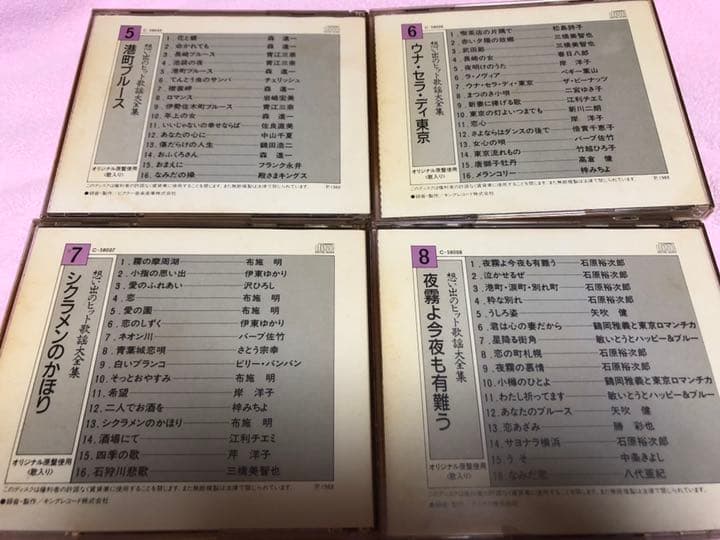 5
C-38035
想い出のヒット歌謡大全集
港町ブルース
オリジナル原盤使用
(歌入り)
1. 花と蝶 森 進一
2. 命かれても 森 進一
3. 長崎ブルース 青江三奈
4. 池袋の夜 青江三奈
5. 港町ブルース 森 進一
6. てんとう虫のサンバ チェリッシュ
7. 襟裳岬 森 進一
8. ロマンス 岩崎宏美
9. 伊勢佐木町ブルース 青江三奈
10. 年上の女 森 進一
11. いいじゃないの幸せならば 佐良直美
12. あなたの心に 中山千夏
13. 傷だらけの人生 鶴田浩二
14. おふくろさん 森 進一
15. おまえに フランク永井
16. なみだの操 殿さまキングス
このディスクは権利者の許諾なく賃貸業に使用することを禁じます。また無断複製は法律で禁じられています。
●録音・製作/ビクター音楽産業株式会社
6
想い出のヒット歌謡大全集
ウナ・セラ・ディ東京
オリジナル原盤使用
(歌入り)
1. 喫茶店の片隅で 松島詩子
2. 赤い夕陽の故郷 三橋美智也
3. 武田節 三橋美智也
4. 長崎の女 春日八郎
5. 夜明けのうた 岸 洋子
6. ラ・ノヴィア ペギー葉山
7. ウナ・セラ・ディ・東京 ザ・ピーナッツ
8. まつのき小唄 二宮ゆき子
9. 新妻に捧げる歌 江利チエミ
10. 東京の灯よいつまでも 新川二朗
11. 恋心 岸 洋子
12. さよならはダンスの後で 倍賞千恵子
13. 女心の唄 バーブ佐竹
14. 東京流れもの 竹越ひろ子
15. 唐獅子牡丹 高倉 健
16. メランコリー 梓みちよ
このディスクは権利者の許諾なく賃貸業に使用することを禁じます。また無断複製は法律で禁じられています。
●録音・製作/キングレコード株式会社
7
C-38037
想い出のヒット歌謡大全集
シクラメンのかほり
オリジナル原盤使用
(歌入り)
1. 霧の摩周湖 布施 明
2. 小指の思い出 伊東ゆかり
3. 愛のふれあい 沢ひろし
4. 恋 布施 明
5. 愛の園 布施 明
6. 恋のしずく 伊東ゆかり
7. ネオン川 バーブ佐竹
8. 青葉城恋唄 さとう宗幸
9. 白いブランコ ビリー・バンバン
10. そっとおやすみ 布施 明
11. 希望 岸 洋子
12. 二人でお酒を 梓みちよ
13. シクラメンのかほり 布施 明
14. 酒場にて 江利チエミ
15. 四季の歌 芹 洋子
16. 石狩川悲歌 三橋美智也
このディスクは権利者の許諾なく賃貸業に使用することを禁じます。また無断複製は法律で禁じられています。
●録音・製作/キングレコード株式会社
8
C-38038
想い出のヒット歌謡大全集
夜霧よ今夜も有難う
オリジナル原盤使用
(歌入り)
1. 夜霧よ今夜も有難う 石原裕次郎
2. 泣かせるぜ 石原裕次郎
3. 港町・涙町・別れ町 石原裕次郎
4. 粋な別れ 石原裕次郎
5. うしろ姿 矢吹 健
6. 君は心の妻だから 鶴岡雅義と東京ロマンチカ
7. 星降る街角 敏いとうとハッピー&ブルー
8. 恋の町札幌 石原裕次郎
9. 夜霧の慕情 石原裕次郎
10. 小樽のひとよ 鶴岡雅義と東京ロマンチカ
11. わたし祈ってます 敏いとうとハッピー&ブルー
12. あなたのブルース 矢吹 健
13. 恋あざみ 勝 彩也
14. サヨナラ横浜 石原裕次郎
15. うそ 中条きよし
16. なみだ恋 八代亜紀